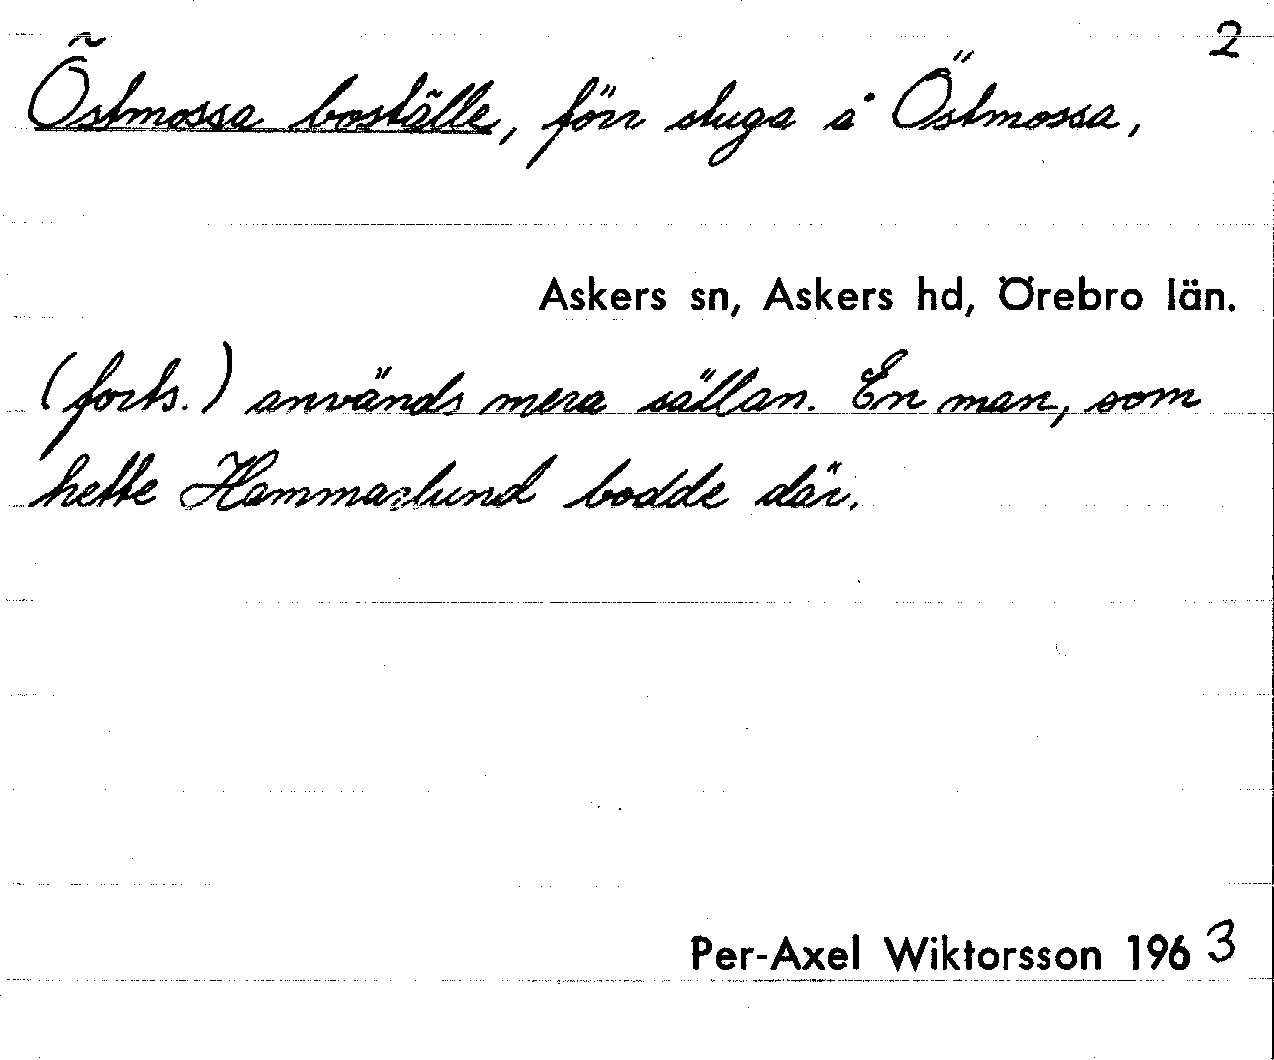 2
Östmossa boställe, förr stuga å Östmossa,
Askers sn, Askers hd, Örebro län.
(forts.) används mera sällan. En man, som
hette Hammarlund bodde där.
Per-Axel Wiktorsson 1963